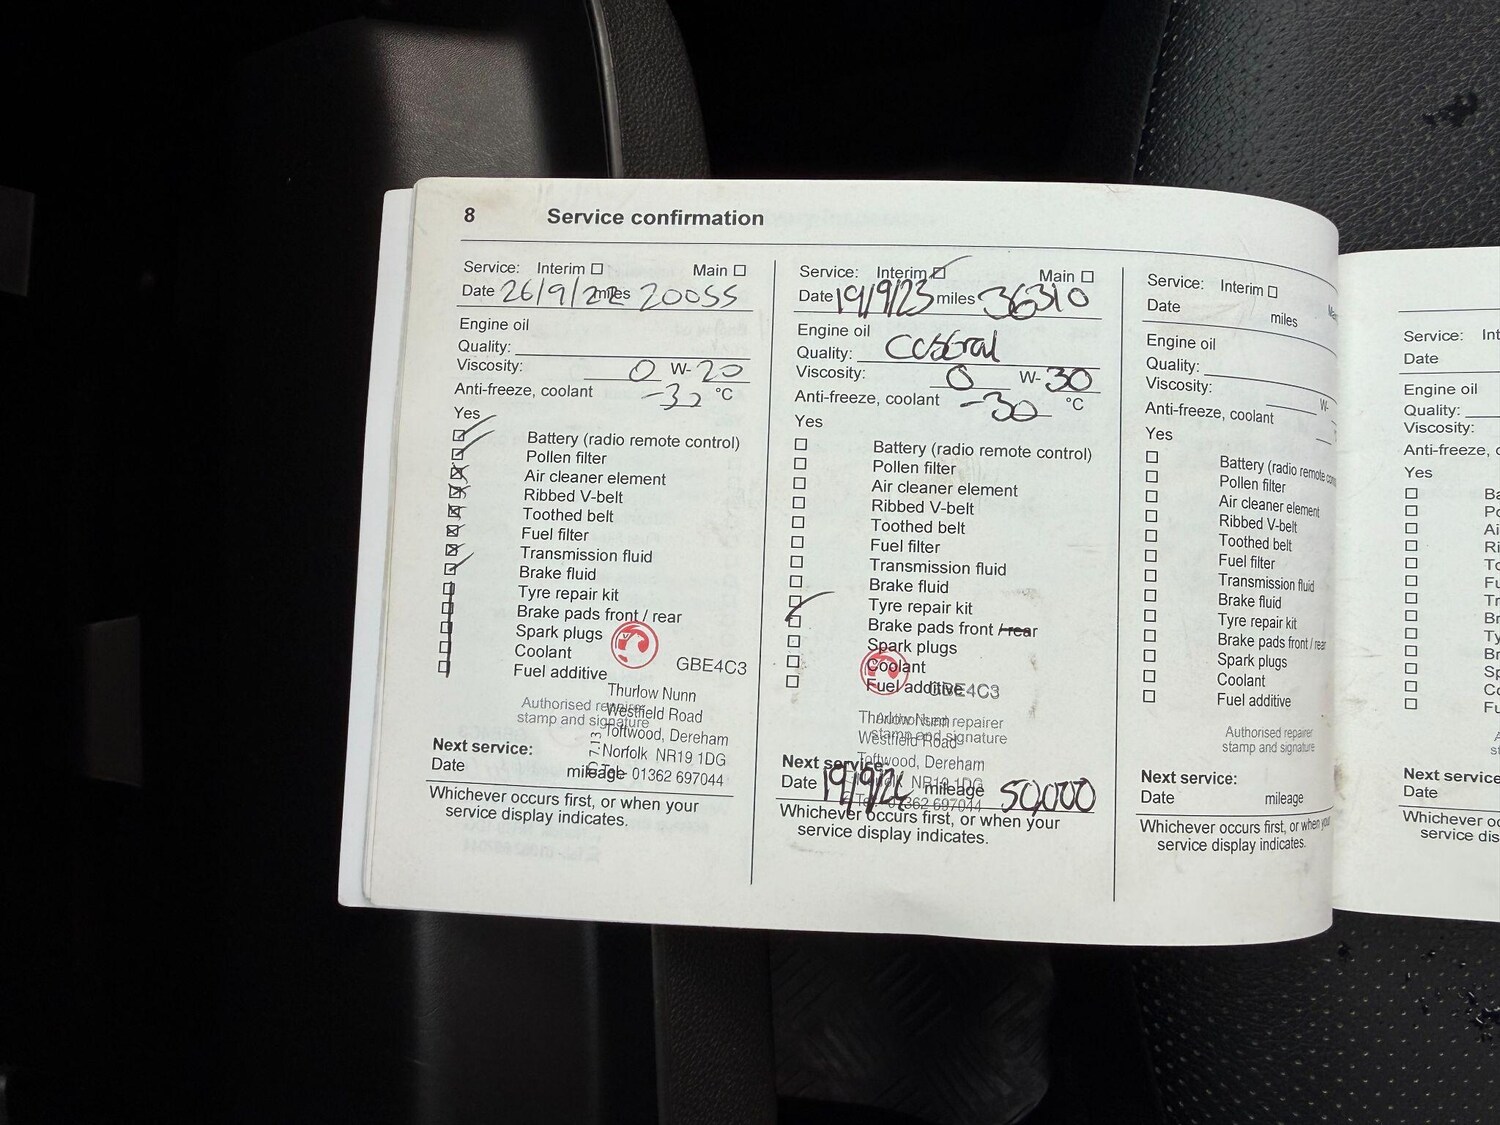 8 Service confirmation
Service: Interim Main
Date 26/9/22 miles 20055
Engine oil
Quality:
Viscosity: 0 W- 20
Anti-freeze, coolant °C
Yes
Battery (radio remote control)
Pollen filter
Air cleaner element
Ribbed V-belt
Toothed belt
Fuel filter
Transmission fluid
Brake fluid
Tyre repair kit
Brake pads front / rear
Spark plugs
Coolant
Fuel additive
GBE4C3
Thurlow Nunn
Westfield Road
Toftwood, Dereham
Norfolk NR19 1DG
Tel: 01362 697044
Authorised repairer
stamp and signature
Next service:
Date mileage
Whichever occurs first, or when your
service display indicates.
Service: Interim Main
Date 19/9/23 miles 36310
Engine oil
Quality:
Viscosity: 0 W- 30
Anti-freeze, coolant -30 °C
Yes
Battery (radio remote control)
Pollen filter
Air cleaner element
Ribbed V-belt
Toothed belt
Fuel filter
Transmission fluid
Brake fluid
Tyre repair kit
Brake pads front / rear
Spark plugs
Coolant
Fuel additive
GBE4C3
Thurlow Nunn
Westfield Road
Toftwood, Dereham
NR19 1DG
01362 697044
Authorised repairer
stamp and signature
Next service:
Date mileage 50,000
Whichever occurs first, or when your
service display indicates.
Service: Interim
Date miles
Engine oil
Quality:
Viscosity: W-
Anti-freeze, coolant
Yes
Battery (radio remote
Pollen filter
Air cleaner element
Ribbed V-belt
Toothed belt
Fuel filter
Transmission fluid
Brake fluid
Tyre repair kit
Brake pads front / rear
Spark plugs
Coolant
Fuel additive
Authorised repairer
stamp and signature
Next service:
Date mileage
Whichever occurs first, or when your
service display indicates.
Service: Int
Date
Engine oil
Quality:
Viscosity:
Anti-freeze, c
Yes
Ba
Po
Ai
Ri
To
Fu
Tr
Br
Ty
Br
Sp
Co
Fu
Next service
Date
Whichever oc
service dis